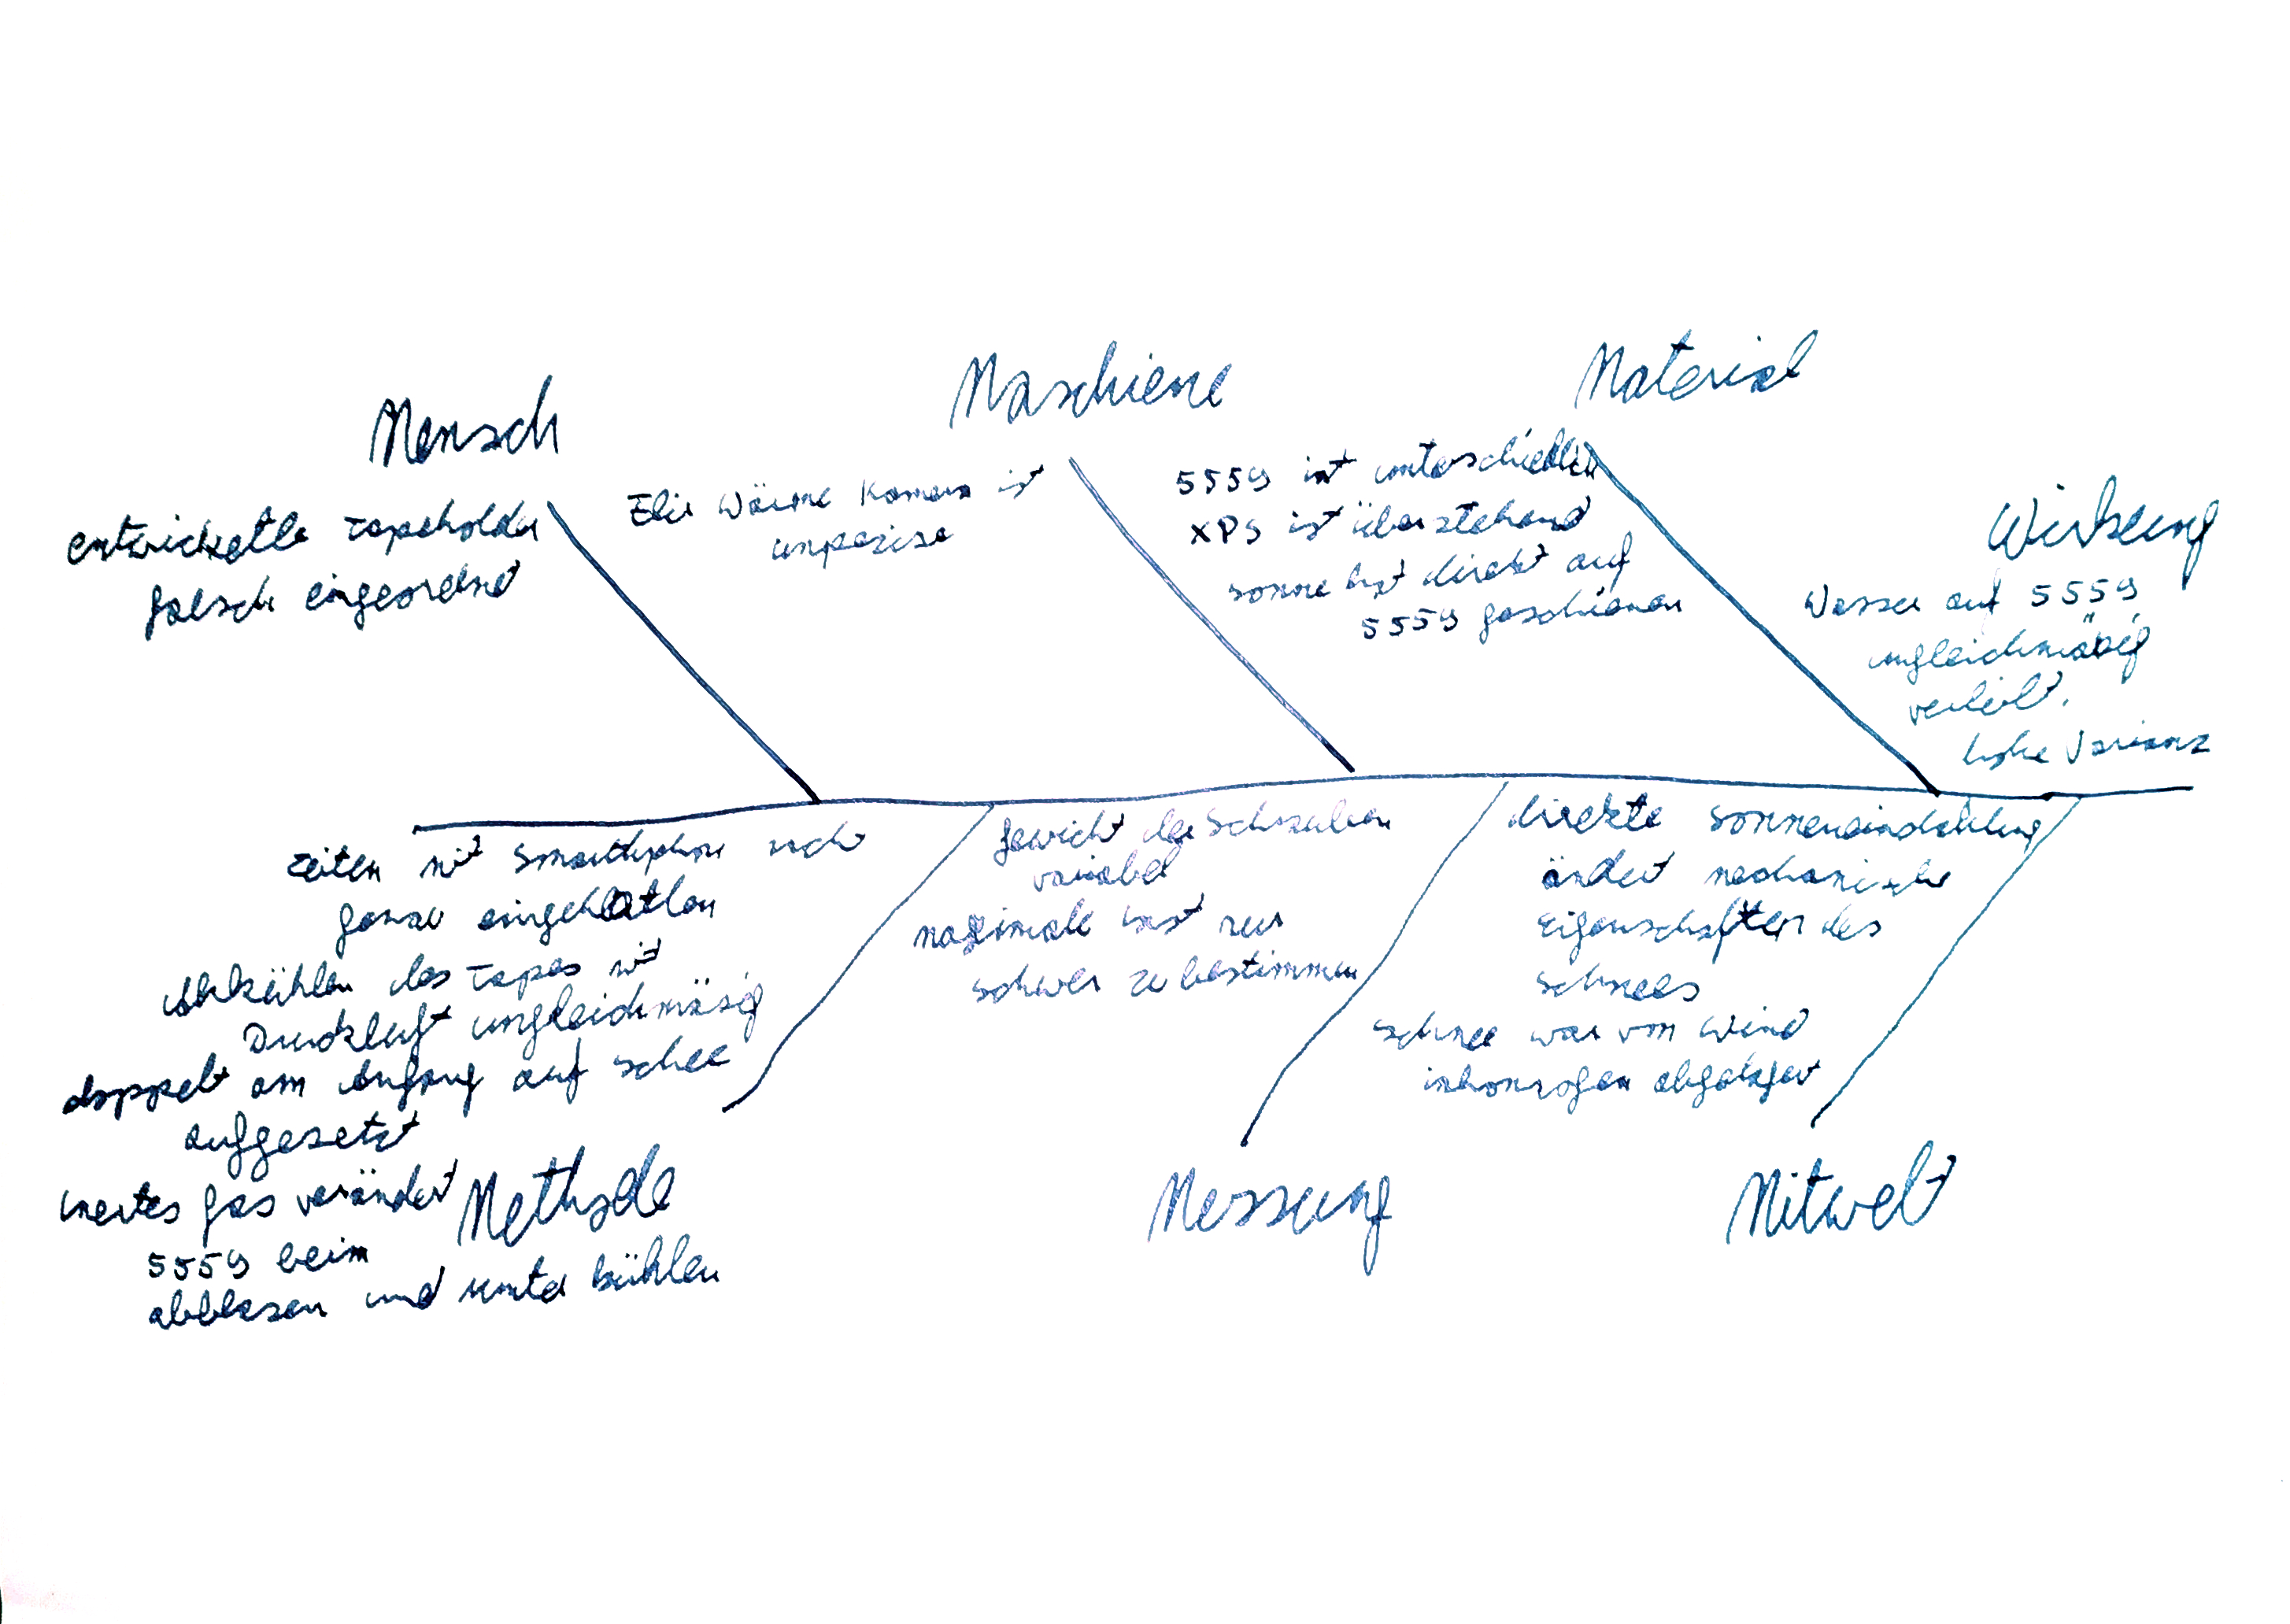 Mensch
entwickelte Tapeholder
falsch eingeordnet
Maschiene
Wärme Kamera ist
Material
5559 ist unterschiedlich
XPS ist überstehend
sonne hat direkt auf
5559 geschienen
Wirkung
Wasser auf 5559
ungleichmäßig
verteilt.
hohe Varianz
Zeiten mit Smartphone nicht
genau eingehalten
Abkühlen des Tapes mit
Druckluft ungleichmäsig
doppelt am Anfang auf schee
aufgesetzt
inertes gas verändert
5559 beim
abblasen und unter kühlen
Methode
Gewicht der Schrauben
variabel
maximale last nur
schwer zu bestimmen
Messung
direkte
ändert mechanische
Eigenschaften des
schnees
schnee war vom Wind
abgelagert
Mitwelt